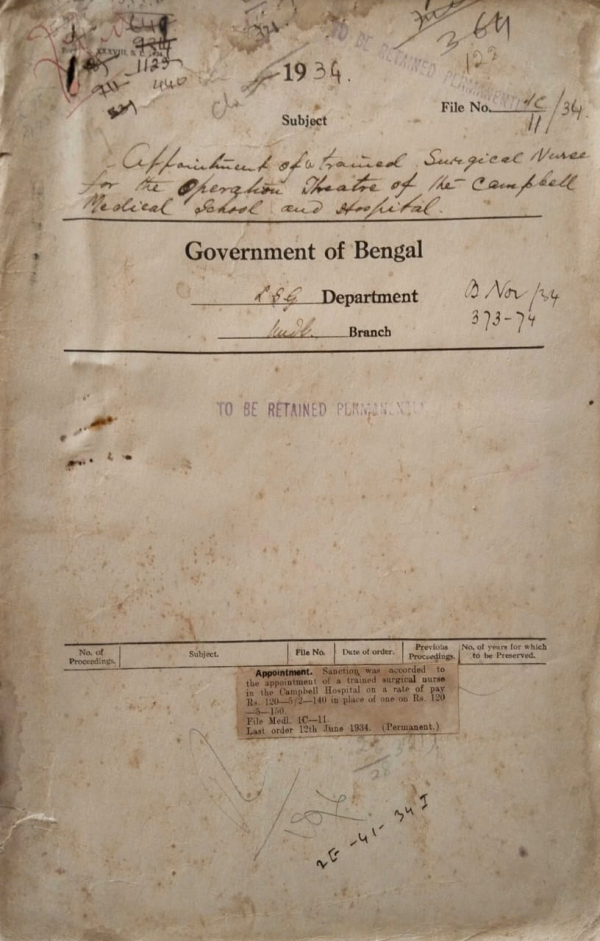 649
1123
440
364
123
TO BE RETAINED PERMANENTLY
1934.
File No. 1C/11/34.
Subject
Appointment of a trained Surgical Nurse
for the Operation Theatre of the Campbell
Medical School and Hospital.
Government of Bengal
L S G Department
B Nov/34
Medl. Branch
373-74
TO BE RETAINED PERMANENTLY
No. of Proceedings. Subject. File No. Date of order. Previous Proceedings. No. of years for which to be Preserved.
Appointment. Sanction was accorded to
the appointment of a trained surgical nurse
in the Campbell Hospital on a rate of pay
Rs. 120—5/2—140 in place of one on Rs. 120
—5—150.
File Medl. 1C—11
Last order 12th June 1934. (Permanent.)